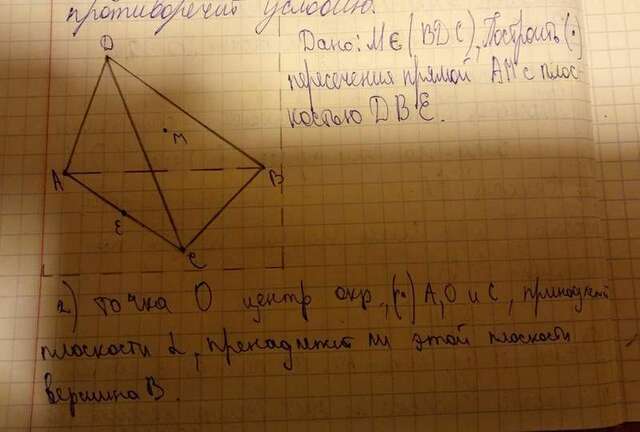 противоречит условию.
Дано: М Є (BDC), Построить (·)
пересечения прямой АМ с плос-
костью DBE.
D
M
A
B
E
C
2) точка О центр окр., (·) А, О и С, принадлежат
плоскости α, пренадлежит ли этой плоскости
вершина В.